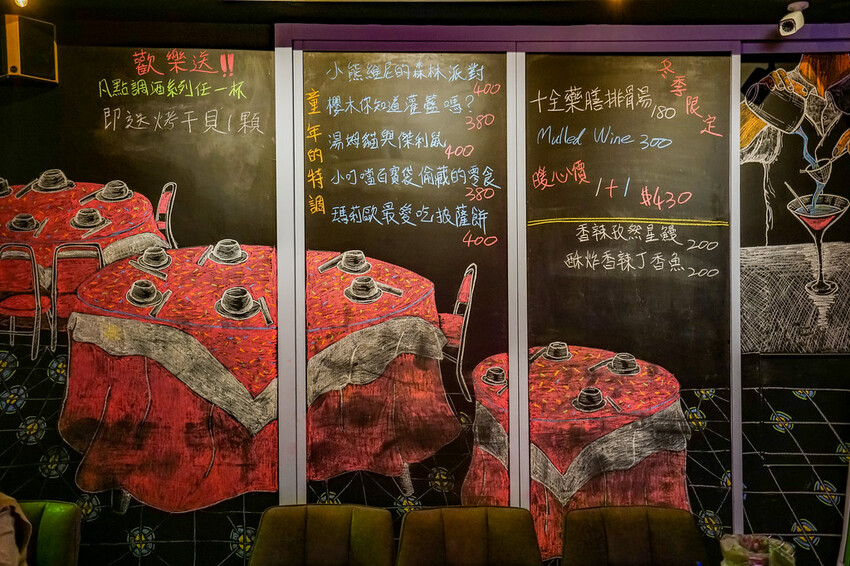 歡樂送!!
凡點調酒系列任一杯
即送烤干貝1顆
童年的特調
小熊維尼的森林派對
400
櫻木你知道灌籃嗎?
380
湯姆貓與傑利鼠
400
小叮噹百寶袋偷藏的零食
380
瑪莉歐最愛吃披薩餅
400
冬季限定
十全藥膳排骨湯 180
Mulled Wine 300
暖心價 1+1 $430
香辣孜然星鰻 200
酥炸香辣丁香魚 200